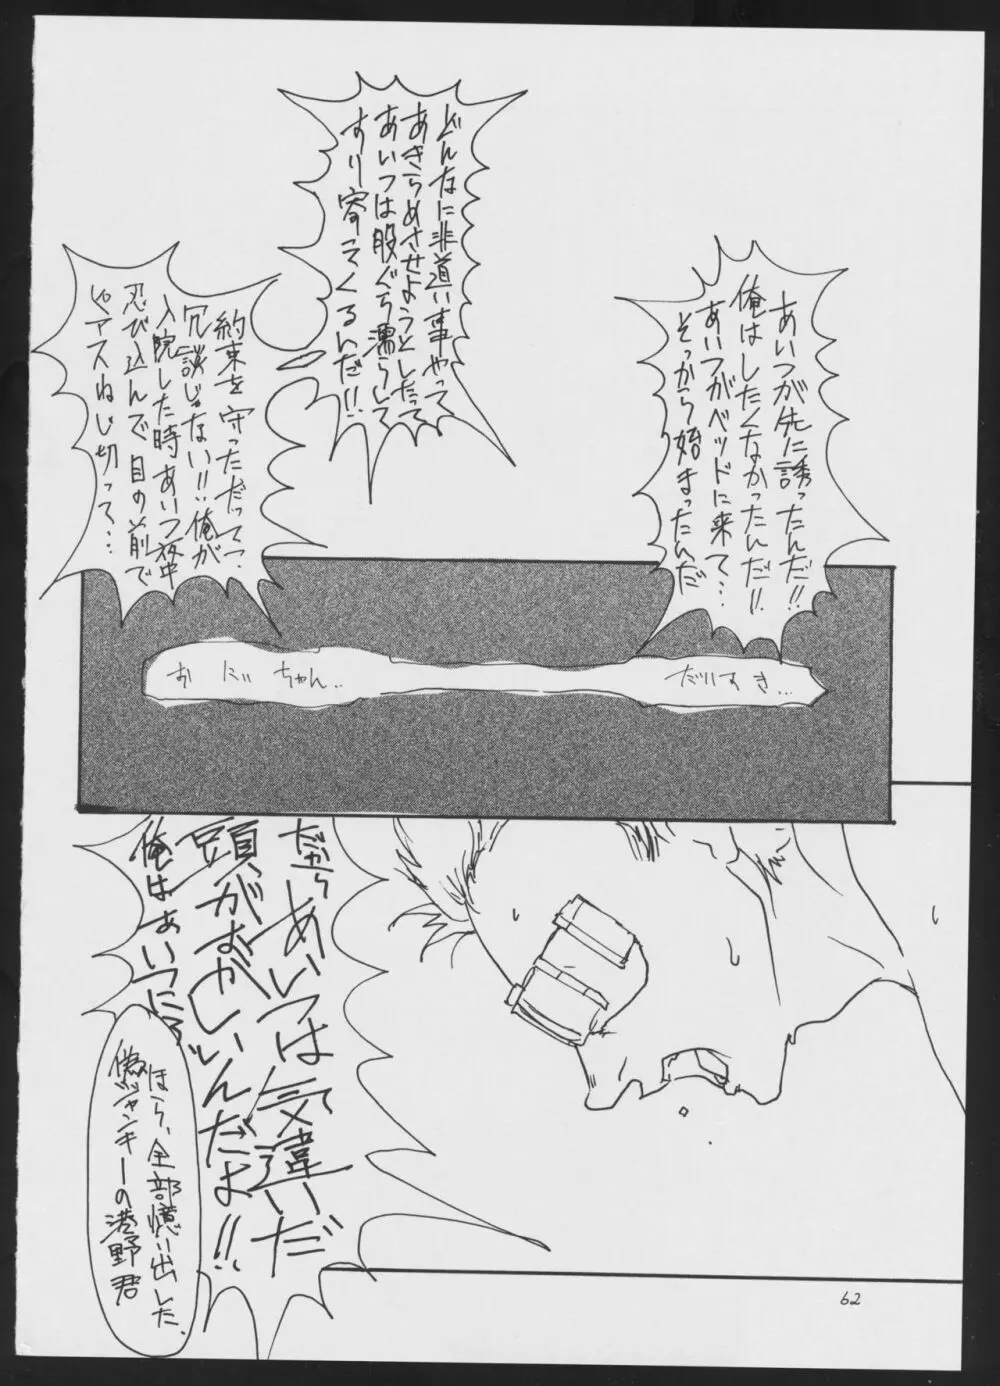 あいつが先に誘ったんだ!!
俺はしたくなかったんだ!!
あいつがベッドに来て…
そっから始まったんだ
どんなに非道い事やって
あきらめさせようとしたって
あいつは股ぐら濡らして
すり寄ってくるんだ!!
約束を守っただって?
冗談じゃない!!俺が
入院した時あいつ夜中
忍び込んで目の前で
ピアスねじ切って…
だいすき…
おにいちゃん..
だから
あいつは気違いだ
頭がおかしいんだよ!!
俺はあいつに
ほら、全部憶い出した
偽ジャンキーの港野君
62